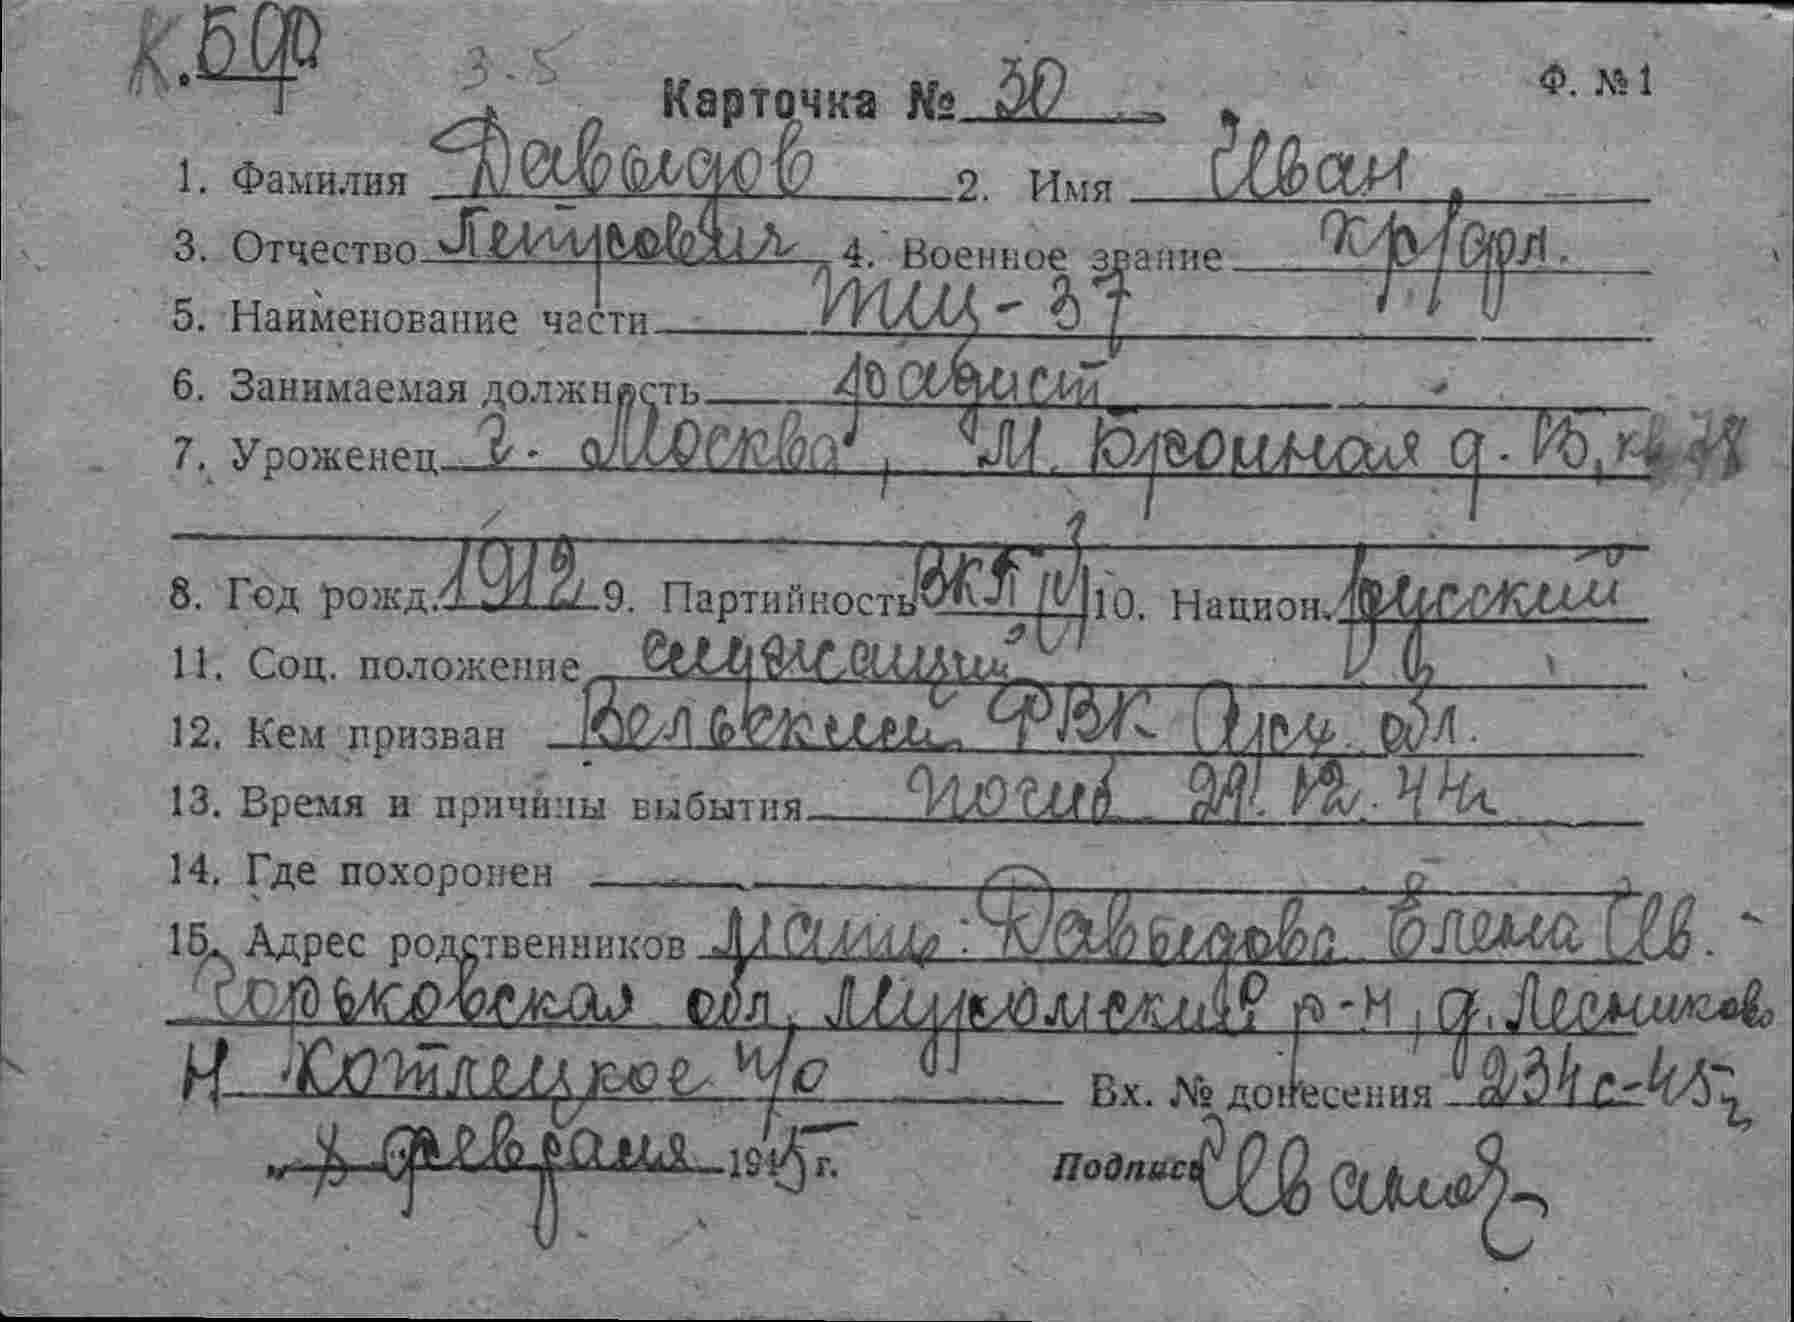 К. БФ
3.5
Ф. №1
Карточка № 30
1. Фамилия Давыдов 2. Имя Иван
3. Отчество Петрович 4. Военное звание кр/фл.
5. Наименование части ТЩ-37
6. Занимаемая должность радист
7. Уроженец г. Москва, М. Бронная д. 15, кв 78
8. Год рожд. 1912 9. Партийность ВКП(б) 10. Национ. русский
11. Соц. положение служащий
12. Кем призван Вельский РВК Арх. обл.
13. Время и причины выбытия погиб 29.12.44г
14. Где похоронен
15. Адрес родственников мать: Давыдова Елена Ив.
Горьковская обл, Муромский р-н, д. Лесниково
Н Котлецкое п/о Вх. № донесения 234с-45г
" 8 февраля 1945 г. Подпись Иванов